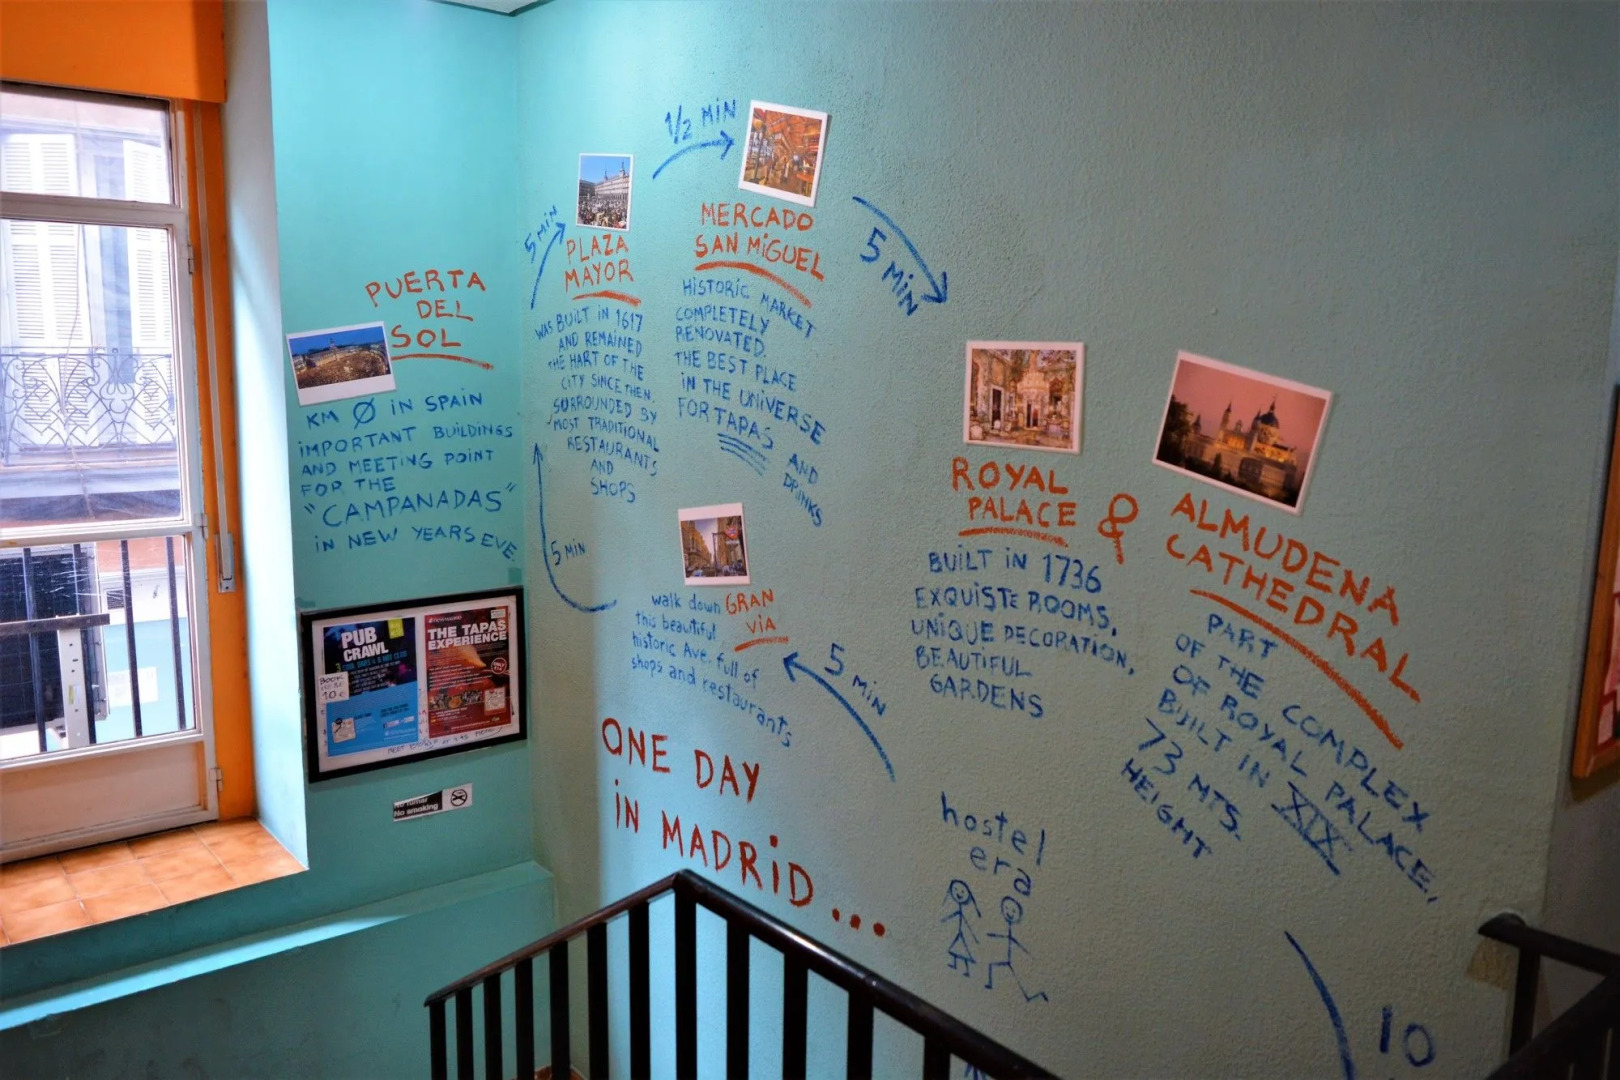 PUERTA
DEL
SOL
KM Ø IN SPAIN
IMPORTANT BUILDINGS
AND MEETING POINT
FOR THE
"CAMPANADAS"
IN NEW YEARS EVE
5 MIN
PLAZA
MAYOR
WAS BUILT IN 1617
AND REMAINED
THE HART OF THE
CITY SINCE THEN.
SURROUNDED BY
MOST TRADITIONAL
RESTAURANTS
AND
SHOPS
1/2 MIN
MERCADO
SAN MIGUEL
HISTORIC MARKET
COMPLETELY
RENOVATED.
THE BEST PLACE
IN THE UNIVERSE
FOR TAPAS AND
DRINKS
5 MIN
ROYAL
PALACE &
BUILT IN 1736
EXQUISTE ROOMS,
UNIQUE DECORATION,
BEAUTIFUL
GARDENS
ALMUDENA
CATHEDRAL
PART
OF THE COMPLEX
OF ROYAL PALACE,
BUILT IN XIX.
73 MTS.
HEIGHT
5 MIN
walk down GRAN
VIA
this beautiful
historic Ave. full of
shops and restaurants
5 MIN
ONE DAY
IN MADRID...
hostel
era
10
PUB
CRAWL
10 €
THE TAPAS
EXPERIENCE
No fumar
No smoking